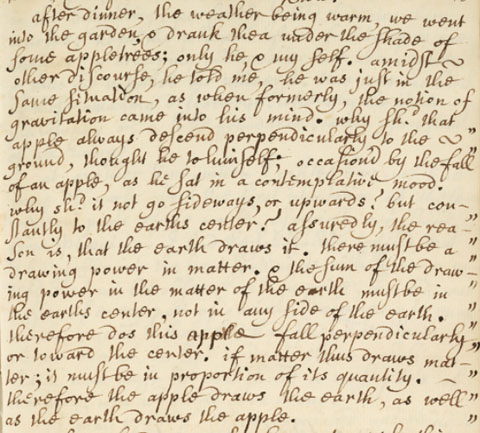 after dinner, the weather being warm, we went
into the garden, & drank thea under the shade of
some appletrees; only he, & my self. amidst
other discourse, he told me, he was just in the
same situation, as when formerly, the notion of
gravitation came into his mind. why shd. that
apple always descend perpendicularly to the
ground, thought he to himself; occasion'd by the fall
of an apple, as he sat in a contemplative mood.
why shd. it not go sideways, or upwards? but con-
stantly to the earths center? assuredly, the rea-
son is, that the earth draws it. there must be a
drawing power in matter. & the sum of the draw-
ing power in the matter of the earth must be in
the earths center, not in any side of the earth.
therefore dos this apple fall perpendicularly
or toward the center. if matter thus draws mat-
ter; it must be in proportion of its quantity.
therefore the apple draws the earth, as well
as the earth draws the apple.